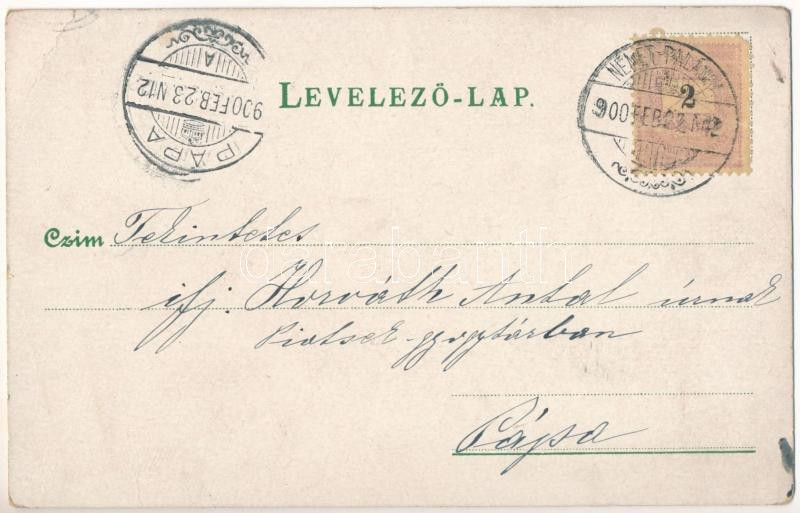 PÁPA
900 FEB. 23 N12
A
LEVELEZŐ-LAP.
NÉMET-PALÁNKA
900 FEB 22 N
2
Czim Tekintetes
ifj. Horváth Antal úrnak
gyogytárban
Pápa
darabanth